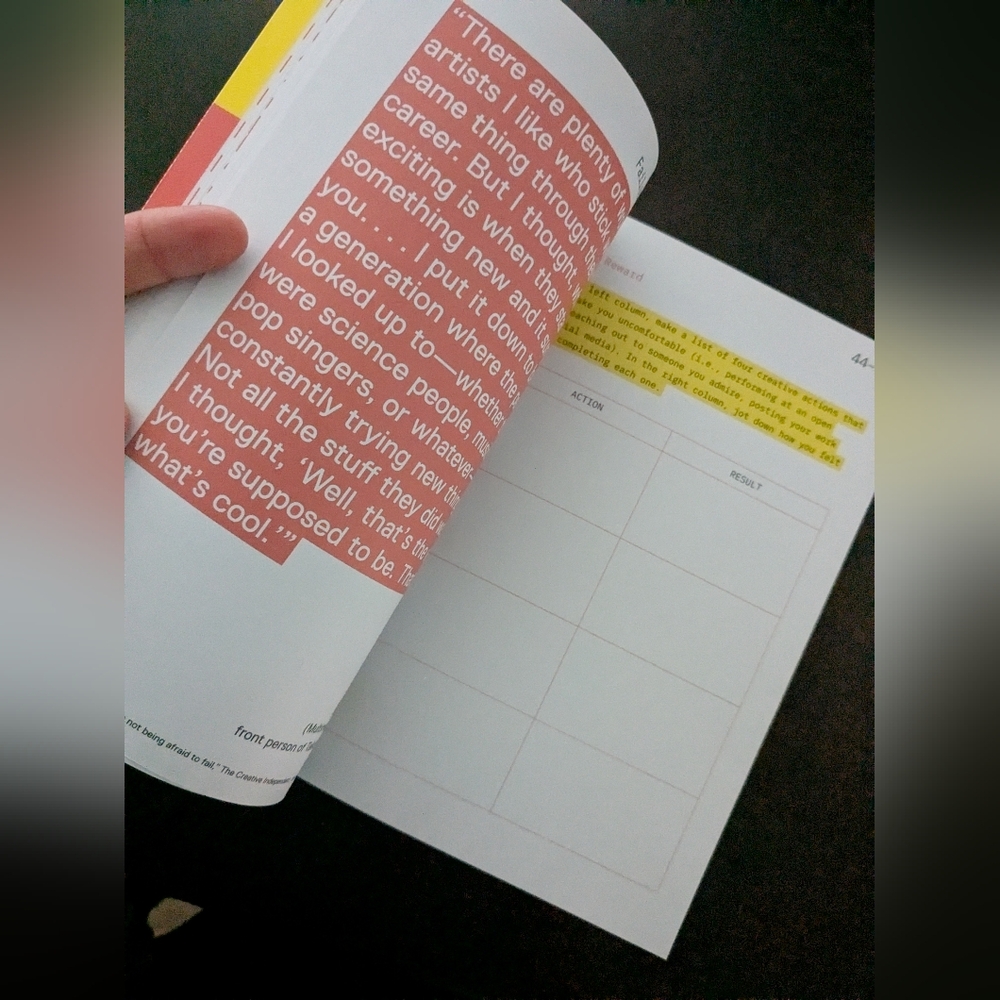 “There are plenty of
artists I like who stick
same thing through
career. But I thought,
exciting is when they
something new and it's
you. . . . I put it down to
a generation where the
I looked up to—whether
were science people,
pop singers, or whatever
constantly trying new
Not all the stuff they did
I thought, ‘Well, that's the
you're supposed to be.
what's cool.’”
front person of
not being afraid to fail,” The Creative Independent
Reward
left column, make a list of four creative actions that
you uncomfortable (i.e., performing at an open
reaching out to someone you admire, posting your work
media). In the right column, jot down how you felt
completing each one.
44—
ACTION
RESULT